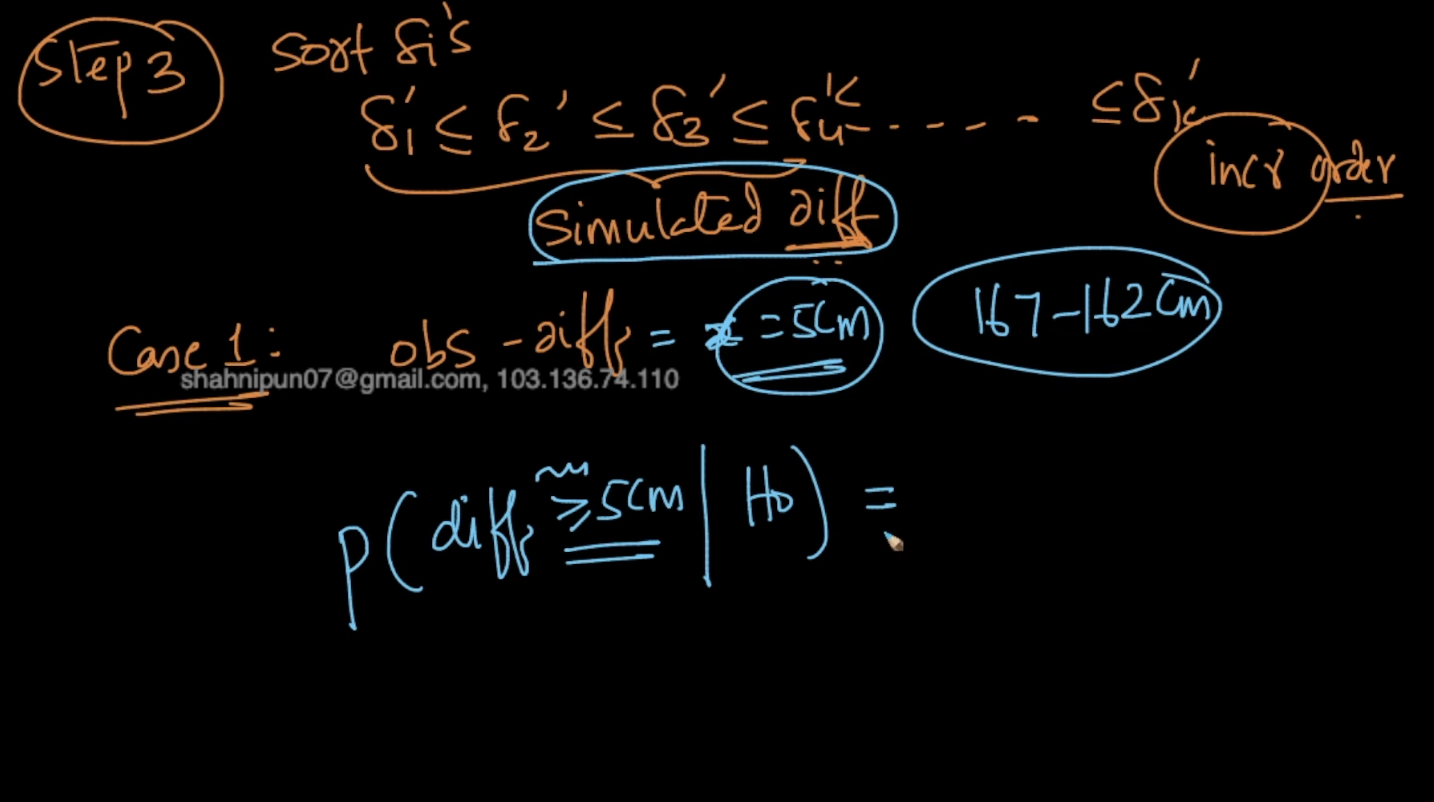 Step 3 Sort δi's
δ1' ≤ δ2' ≤ δ3' ≤ δ4' ≤ ----- ≤ δk'
incr order
Simulated diff
Case 1: obs - diff = x = 5cm 167-162cm
shahnipun07@gmail.com, 103.136.74.110
P(diff ≥ 5cm | H0) =